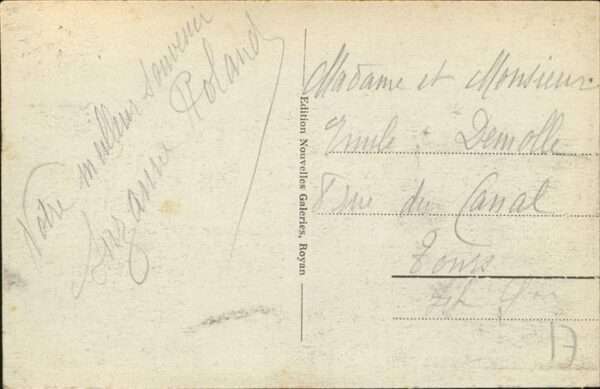 Votre meilleur souvenir
Suzanne Roland
Edition Nouvelles Galeries, Royan
Madame et Monsieur
Emile Demolle
8 rue du Canal
Tours
17